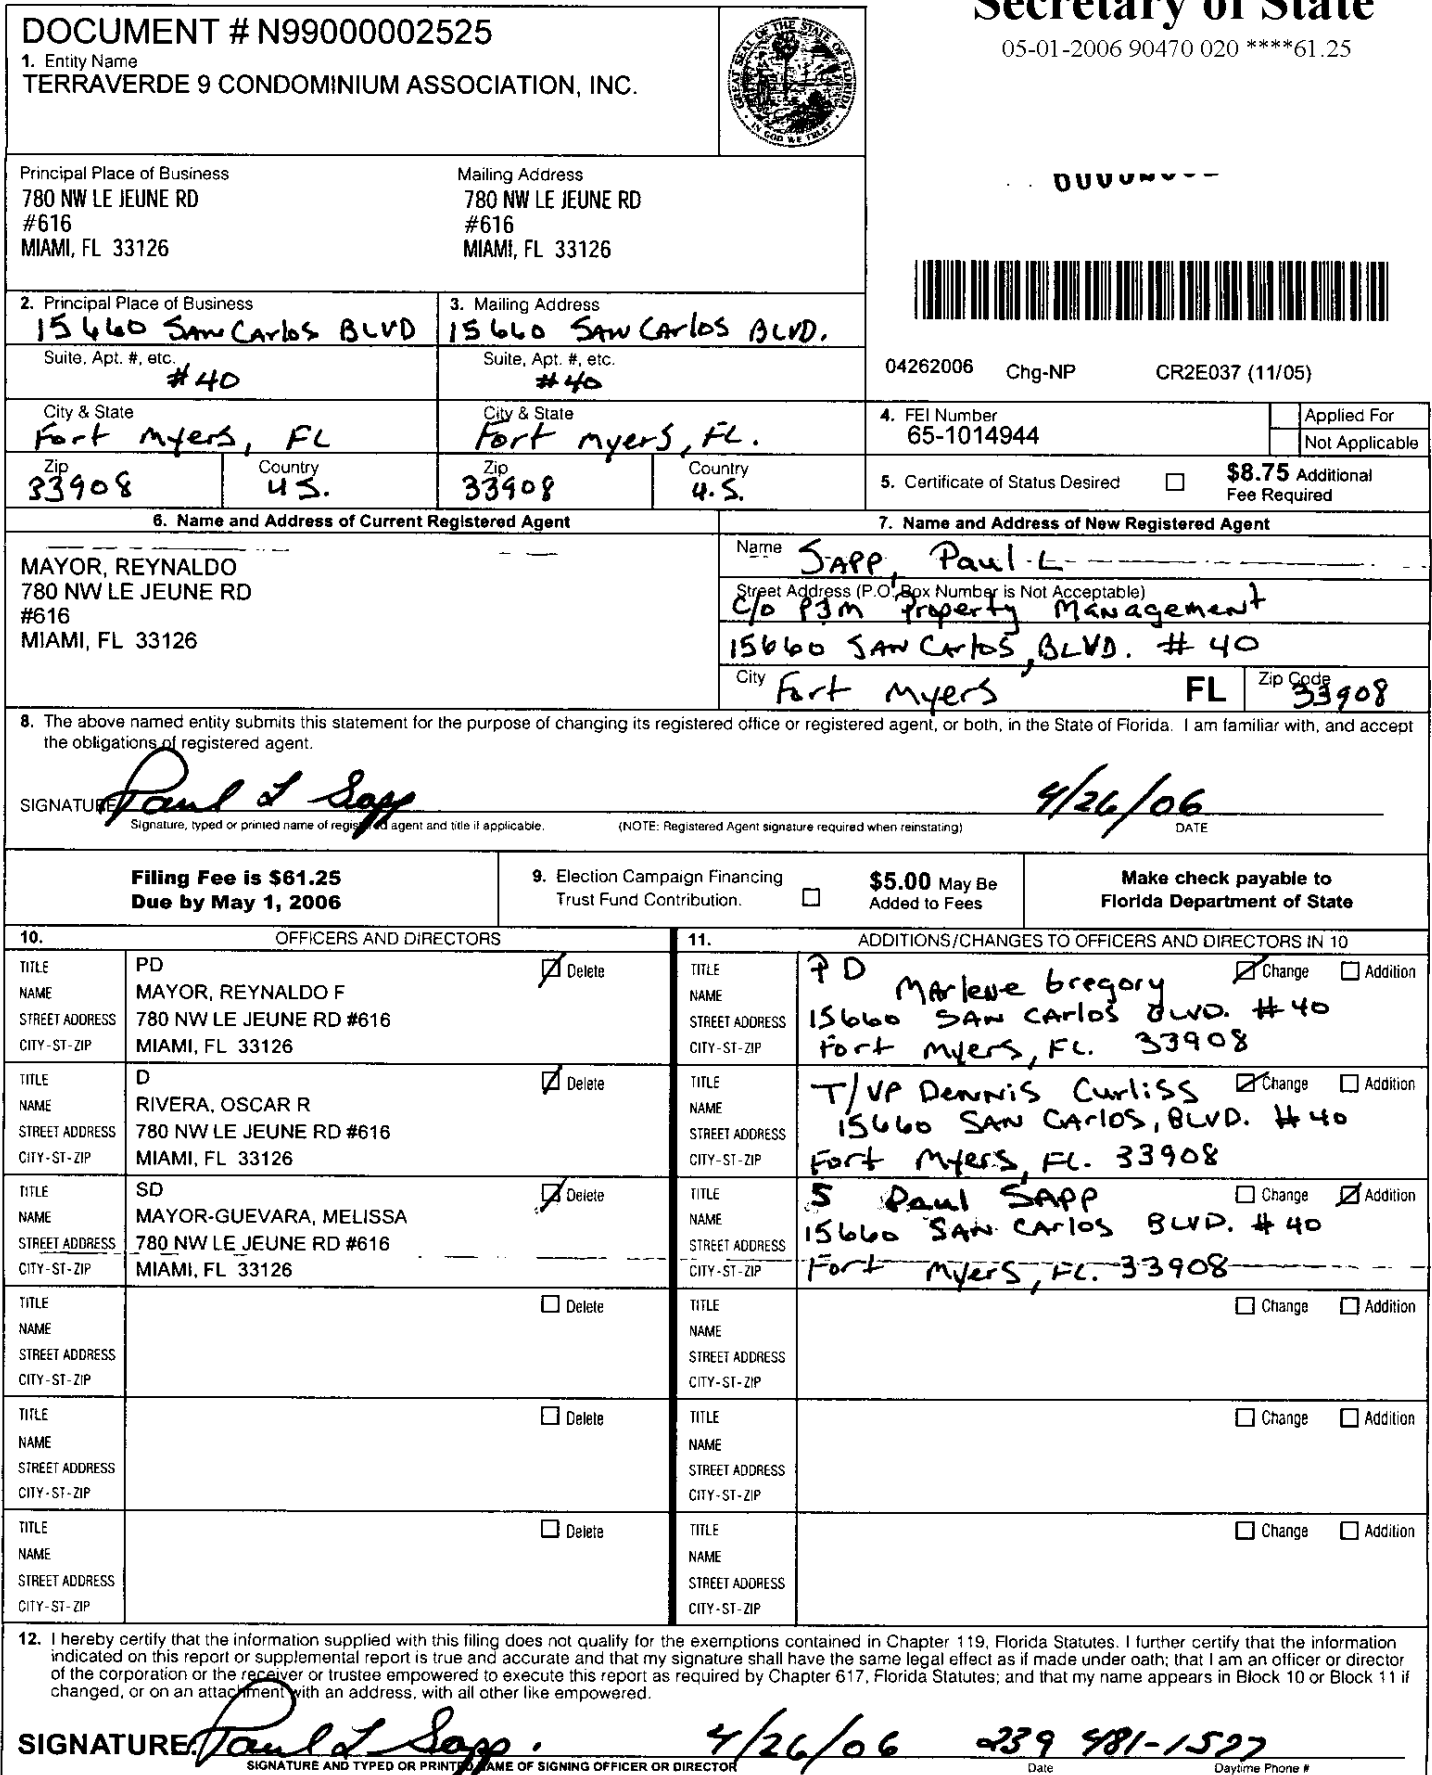 Secretary of State
05-01-2006 90470 020 ****61.25
DOCUMENT # N99000002525
1. Entity Name
TERRAVERDE 9 CONDOMINIUM ASSOCIATION, INC.
GREAT SEAL OF THE STATE OF FLORIDA
IN GOD WE TRUST
Principal Place of Business
780 NW LE JEUNE RD
#616
MIAMI, FL 33126
Mailing Address
780 NW LE JEUNE RD
#616
MIAMI, FL 33126
2. Principal Place of Business
15660 SAN CArlos BLVD
Suite, Apt. #, etc.
#40
City & State
Fort Myers, FL
Zip
33908
Country
US.
3. Mailing Address
15660 SAN CArlos BLVD.
Suite, Apt. #, etc.
#40
City & State
Fort myers, FL.
Zip
33908
Country
U.S.
04262006 Chg-NP CR2E037 (11/05)
4. FEI Number
65-1014944
Applied For
Not Applicable
5. Certificate of Status Desired
$8.75 Additional
Fee Required
6. Name and Address of Current Registered Agent
MAYOR, REYNALDO
780 NW LE JEUNE RD
#616
MIAMI, FL 33126
7. Name and Address of New Registered Agent
Name SAPP, Paul L
Street Address (P.O. Box Number is Not Acceptable)
C/o Property MANAgement
15660 SAN CArlos, BLVD. # 40
City Fort Myers FL Zip Code 33908
8. The above named entity submits this statement for the purpose of changing its registered office or registered agent, or both, in the State of Florida. I am familiar with, and accept
the obligations of registered agent.
SIGNATURE Paul L Sapp 4/26/06
Signature, typed or printed name of registered agent and title if applicable. (NOTE: Registered Agent signature required when reinstating) DATE
Filing Fee is $61.25
Due by May 1, 2006
9. Election Campaign Financing
Trust Fund Contribution.
$5.00 May Be
Added to Fees
Make check payable to
Florida Department of State
10. OFFICERS AND DIRECTORS
TITLE PD Delete
NAME MAYOR, REYNALDO F
STREET ADDRESS 780 NW LE JEUNE RD #616
CITY-ST-ZIP MIAMI, FL 33126
TITLE D Delete
NAME RIVERA, OSCAR R
STREET ADDRESS 780 NW LE JEUNE RD #616
CITY-ST-ZIP MIAMI, FL 33126
TITLE SD Delete
NAME MAYOR-GUEVARA, MELISSA
STREET ADDRESS 780 NW LE JEUNE RD #616
CITY-ST-ZIP MIAMI, FL 33126
TITLE Delete
NAME
STREET ADDRESS
CITY-ST-ZIP
TITLE Delete
NAME
STREET ADDRESS
CITY-ST-ZIP
TITLE Delete
NAME
STREET ADDRESS
CITY-ST-ZIP
11. ADDITIONS/CHANGES TO OFFICERS AND DIRECTORS IN 10
TITLE PD Change Addition
NAME MArlene Gregory
STREET ADDRESS 15660 SAN CArlos BLVD. #40
CITY-ST-ZIP Fort Myers, FL. 33908
TITLE T/VP DeNNis Curliss Change Addition
NAME
STREET ADDRESS 15660 SAN CArlos, BLVD. #40
CITY-ST-ZIP Fort Myers, FL. 33908
TITLE S Paul SAPP Change Addition
NAME
STREET ADDRESS 15660 SAN CArlos BLVD. #40
CITY-ST-ZIP Fort Myers, FL. 33908
TITLE Change Addition
NAME
STREET ADDRESS
CITY-ST-ZIP
TITLE Change Addition
NAME
STREET ADDRESS
CITY-ST-ZIP
TITLE Change Addition
NAME
STREET ADDRESS
CITY-ST-ZIP
12. I hereby certify that the information supplied with this filing does not qualify for the exemptions contained in Chapter 119, Florida Statutes. I further certify that the information
indicated on this report or supplemental report is true and accurate and that my signature shall have the same legal effect as if made under oath; that I am an officer or director
of the corporation or the receiver or trustee empowered to execute this report as required by Chapter 617, Florida Statutes; and that my name appears in Block 10 or Block 11 if
changed, or on an attachment with an address, with all other like empowered.
SIGNATURE: Paul L Sapp. 4/26/06 239 481-1527
SIGNATURE AND TYPED OR PRINTED NAME OF SIGNING OFFICER OR DIRECTOR Date Daytime Phone #